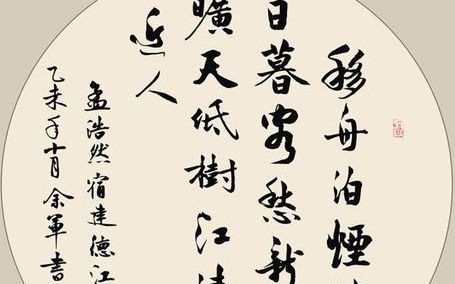 移舟泊煙
日暮客愁新
曠天低樹江清
近人
孟浩然宿建德江
乙未年十月余軍書